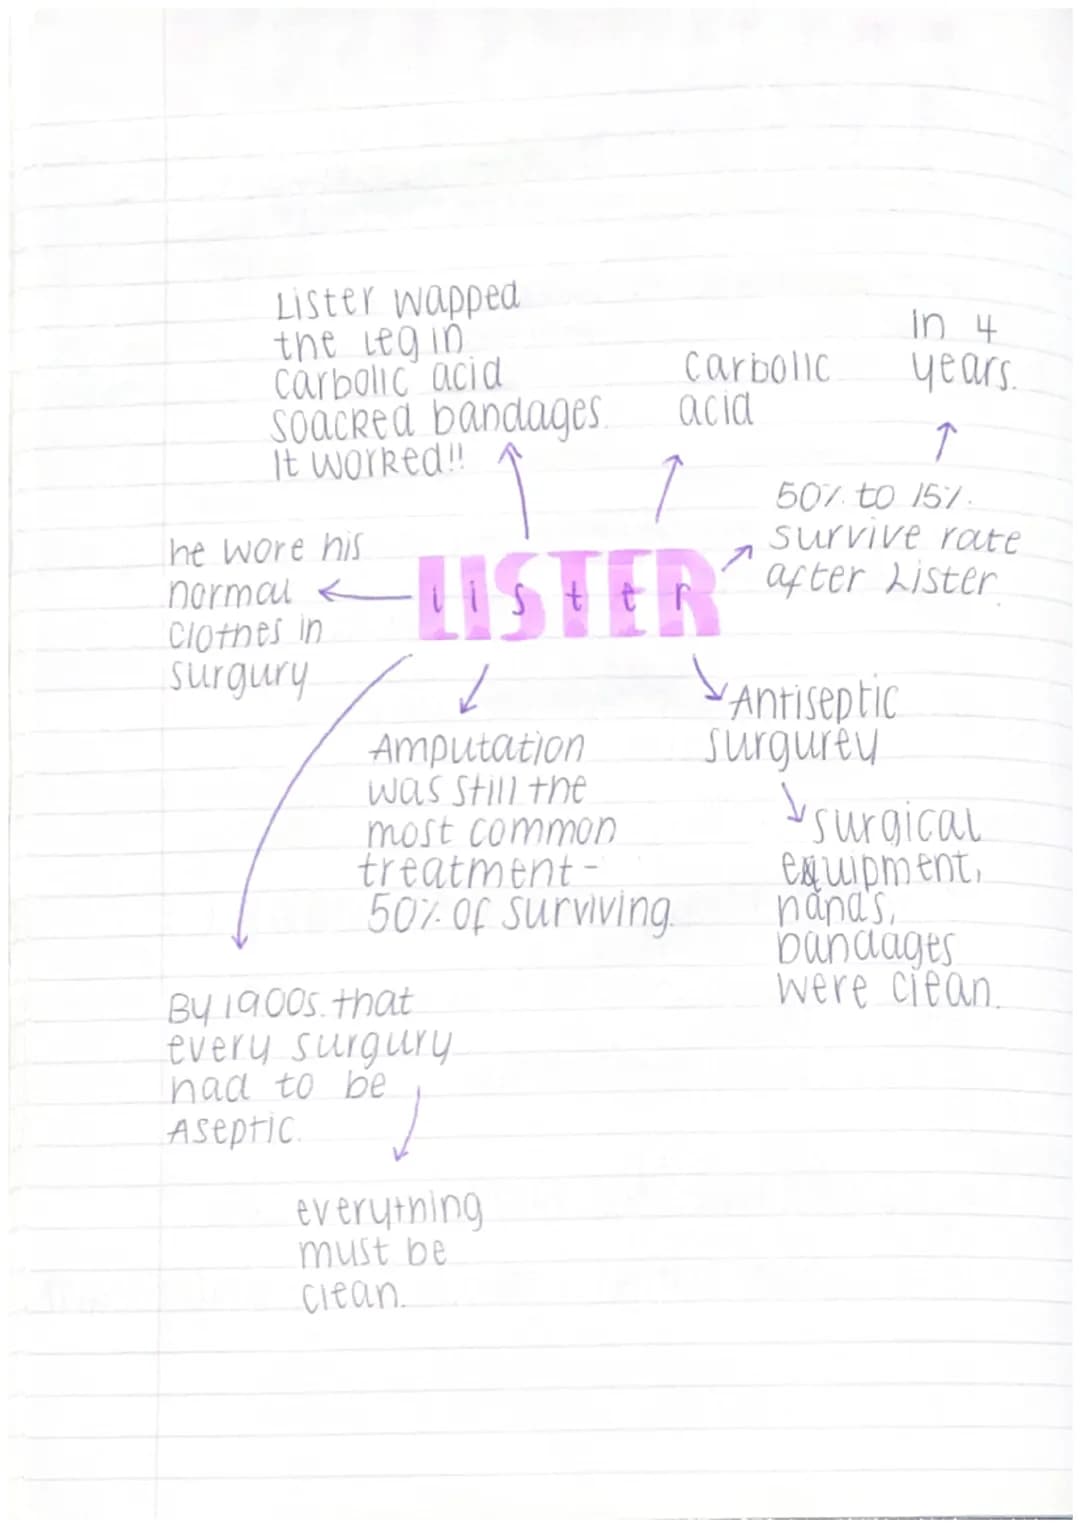 Lister wapped
the leg in
carbolic acid
soacked bandages.
It worked!!
Carbolic
acid
In 4
years.
50% to 15%.
survive rate
after Lister.
he wore his
normal
clothes in
surgury
LISTER
lister
Amputation
was still the
most common
treatment -
50% of surviving.
Antiseptic
surgurey
surgical
equipment,
hands,
bandages
were clean.
By 1900s. that
every surgury
had to be
Aseptic.
everything
must be
clean.